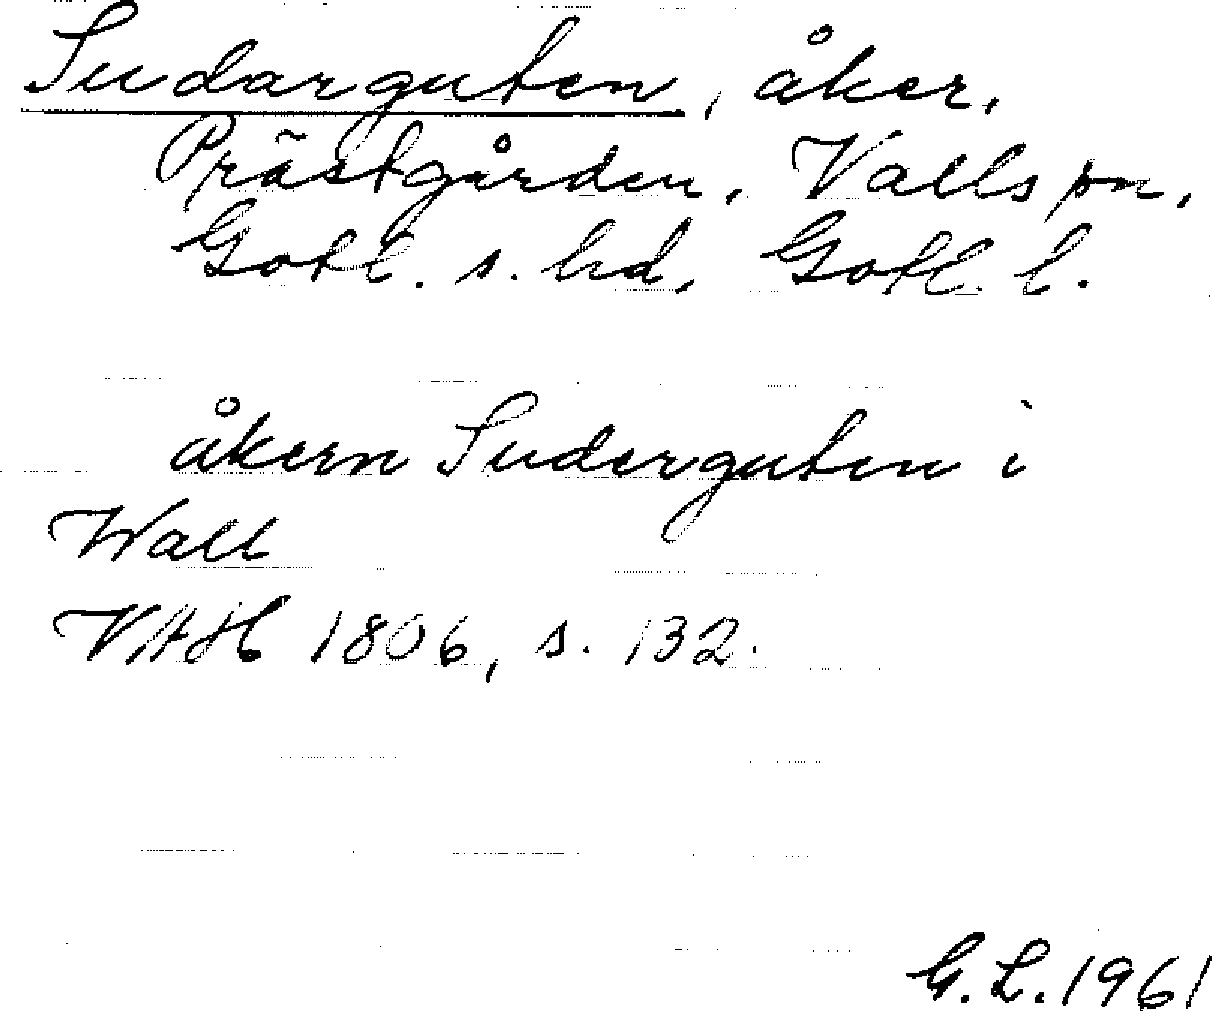 Sudarguten, åker,
Prästgården, Valls sn,
Gotl. s. hd, Gotl. l.
åkern Suderguten i
Wall
VAH 1806, s. 132.
G. L. 1961